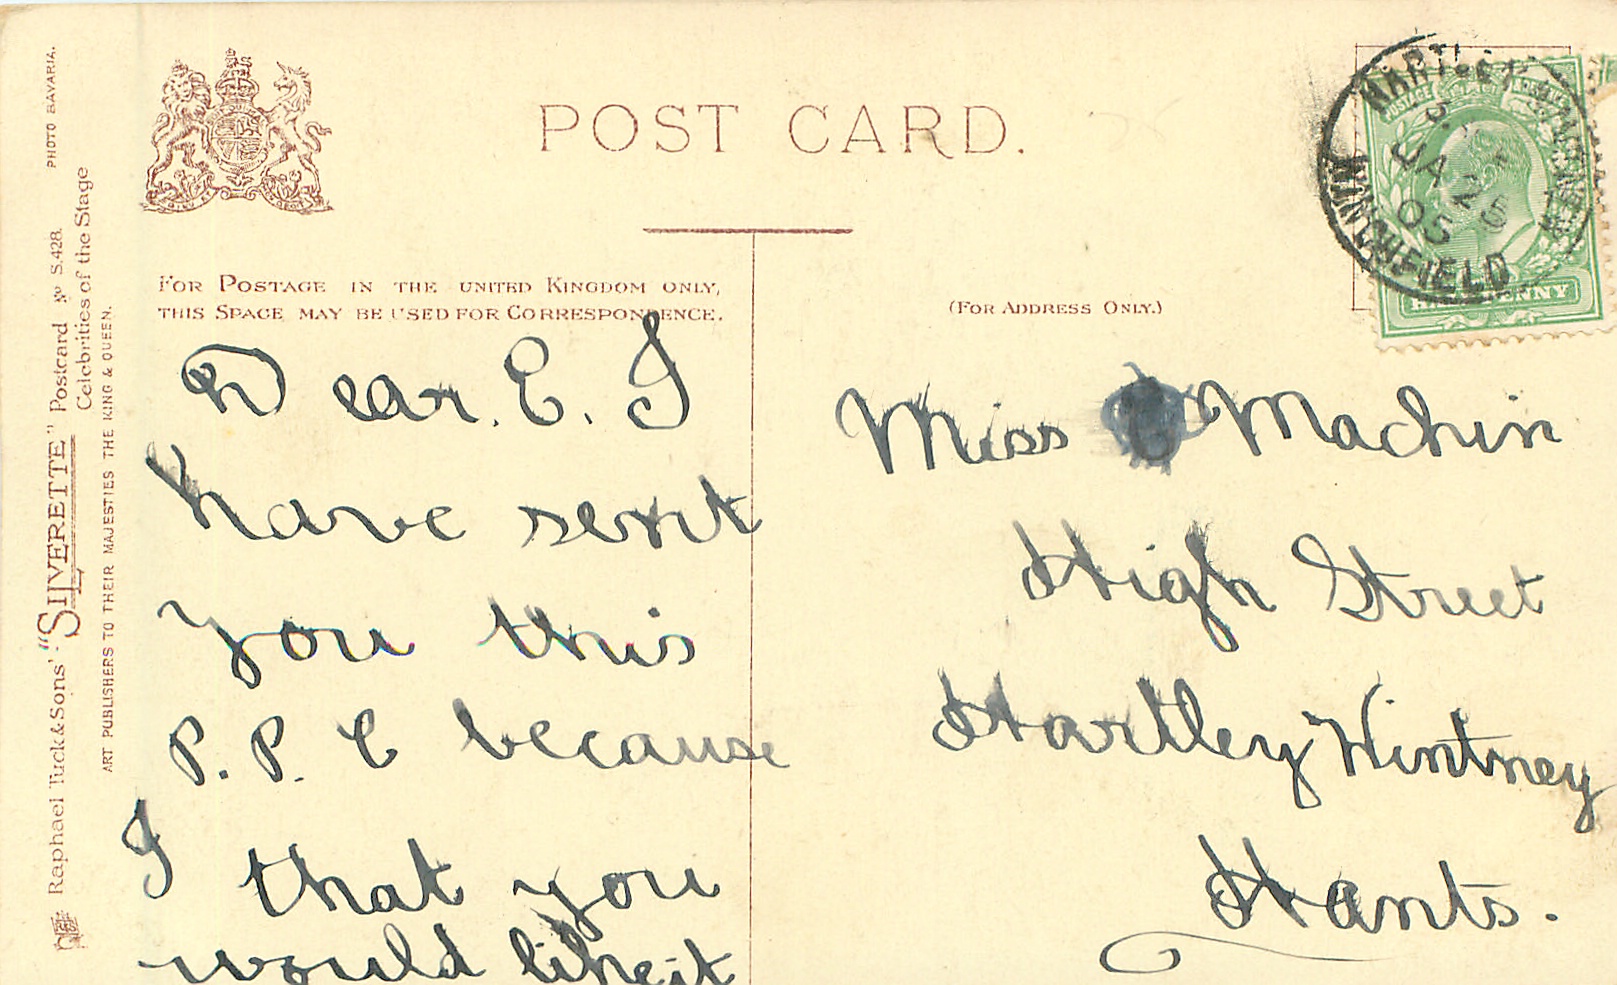 POST CARD.
FOR POSTAGE IN THE UNITED KINGDOM ONLY,
THIS SPACE MAY BE USED FOR CORRESPONDENCE.
(FOR ADDRESS ONLY.)
Dear. E. I
have sent
you this
P. P. C because
I that you
would like it
Miss Machin
High Street
Hartley Wintney
Hants.
HARTLEY WINTNEY
JA 25
05
WINCHFIELD
POSTAGE
HALFPENNY
PHOTO BAVARIA.
Raphael Tuck & Sons' "SILVERETTE" Postcard No S.428.
Celebrities of the Stage
ART PUBLISHERS TO THEIR MAJESTIES THE KING & QUEEN.